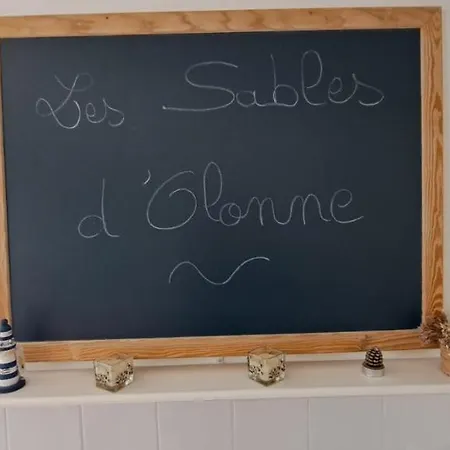 Les Sables
d'Olonne